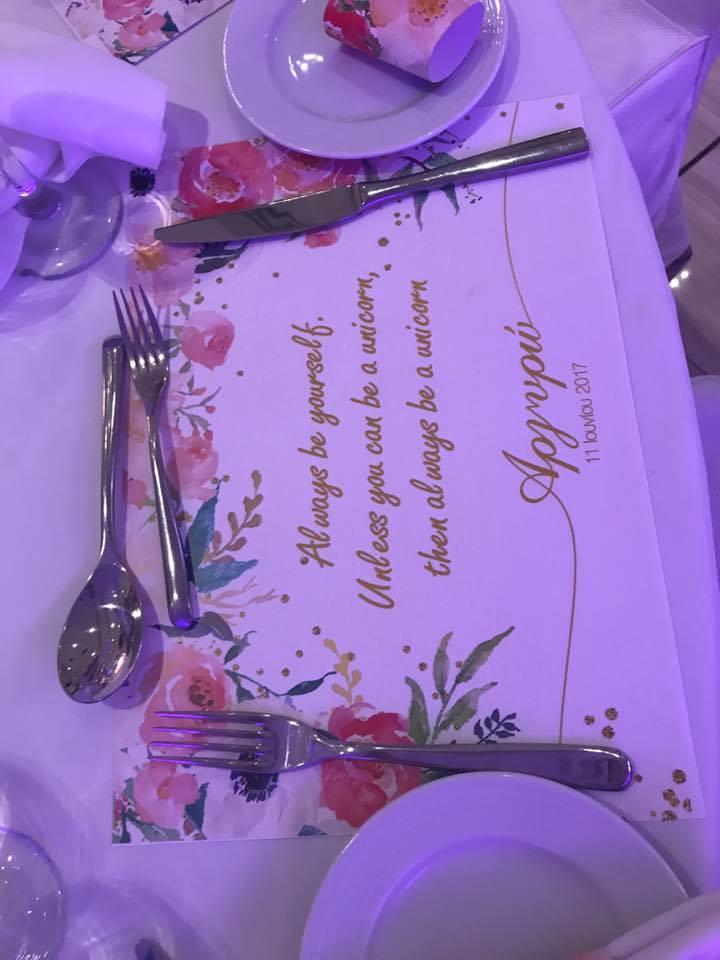 Always be yourself.
Unless you can be a unicorn,
then always be a unicorn
Αργυρώ
11 Ιουνίου 2017